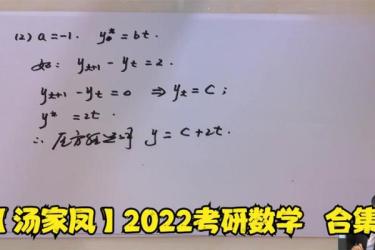 (2) a=-1. y₀*=bt.
如: yₜ₊₁-yₜ=2.
yₜ₊₁-yₜ=0 ⇒ yₜ=C;
y*=2t.
∴ 原方程通解 y=C+2t.
【汤家凤】2022考研数学 合集